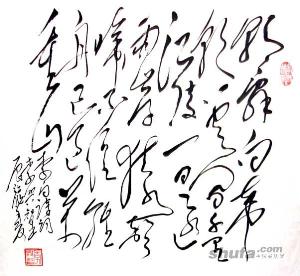 朝辞白帝
彩云间千里
江陵一日还
两岸猿声
啼不住轻
舟已过万
重山李白诗
shufa.com